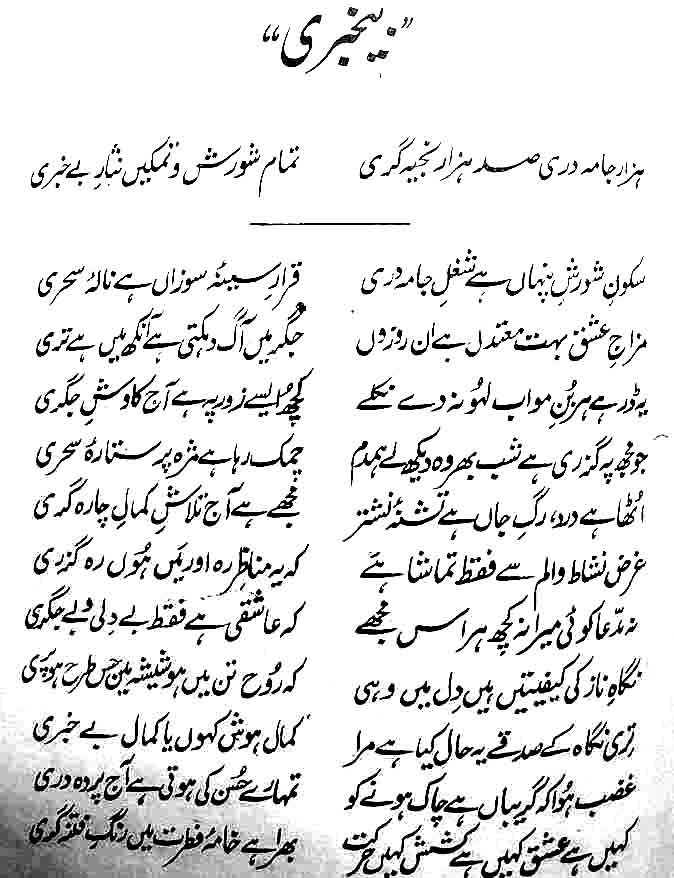 ”بیخبری“
ہزار جامہ دری صد ہزار بخیہ گری تمام شورش و تمکیں نثارِ بے خبری
سکونِ شورشِ پنہاں ہے شغلِ جامہ دری قرارِ سینہ سوزاں ہے نالۂ سحری
مزاجِ عشق بہت معتدل ہے ان روزوں جگر میں آگ دہکتی ہے آنکھ میں ہے تری
یہ ڈر ہے ہر بُنِ مو اب لہو نہ دے نکلے کچھ ایسے زور پہ ہے آج کاوشِ جگری
جو مجھ پہ گزری ہے شب بھر وہ دیکھ لے ہمدم چمک رہا ہے مژہ پر ستارۂ سحری
اُٹھا ہے درد، رگِ جاں ہے تشنۂ نشتر مجھے ہے آج تلاشِ کمالِ چارہ گری
غرض نشاط و الم سے فقط تماشا ہے کہ یہ مناظرِ رہ اور میں ہوں رہ گزری
نہ مدّعا کوئی میرا نہ کچھ ہراس مجھے کہ عاشقی ہے فقط بے دلی و بے جگری
نگاہِ ناز کی کیفیتیں ہیں دل میں وہی کہ رُوح تن میں ہو شیشہ میں جس طرح ہو پری
تری نگاہ کے صدقے یہ حال کیا ہے مرا کمال ہوش کہوں یا کمال بے خبری
غضب ہوا کہ گریباں ہے چاک ہونے کو تمہارے حُسن کی ہوتی ہے آج پردہ دری
کہیں ہے عشق کہیں ہے کشش کہیں حرکت بھرا ہے خامۂ فطرت میں رنگِ فتنہ گری